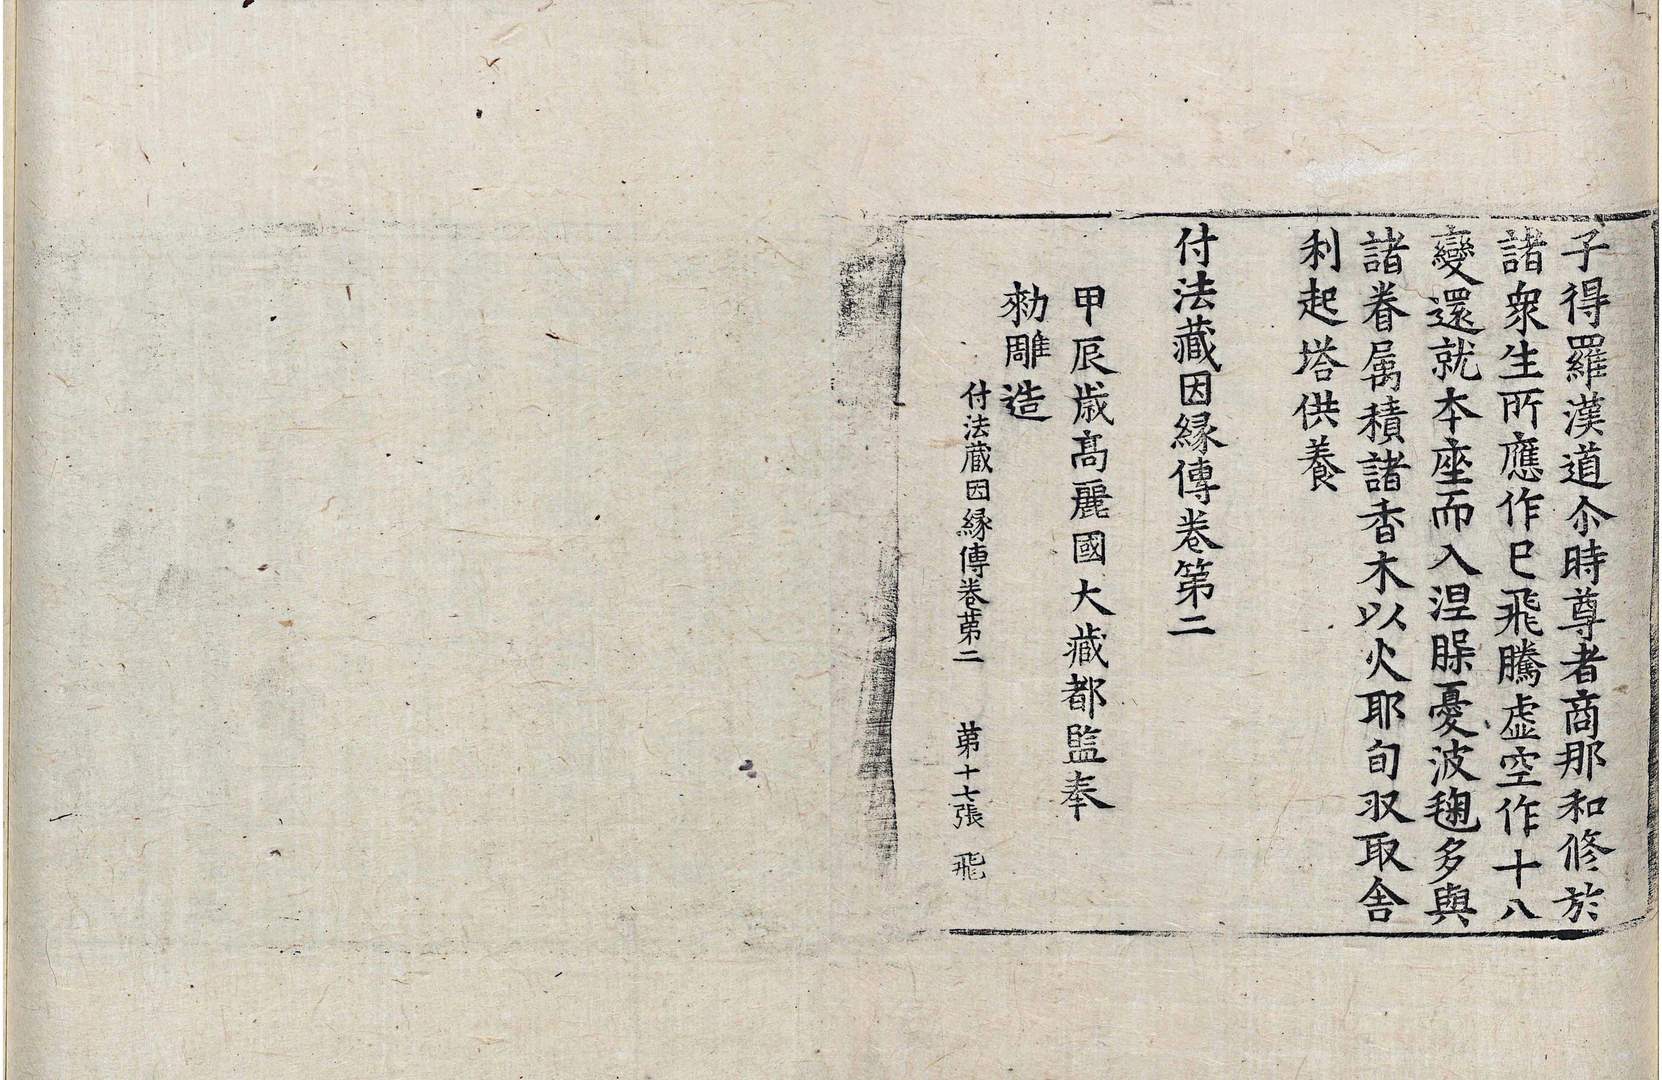 子得羅漢道尒時尊者商那和修於
諸衆生所應作已飛騰虛空作十八
變還就本座而入涅槃憂波毱多與
諸眷屬積諸香木以火耶旬収取舍
利起塔供養
付法藏因縁傳卷第二
甲辰歳高麗國大藏都監奉
勑雕造
付法蔵因縁傳卷第二 第十七張 飛